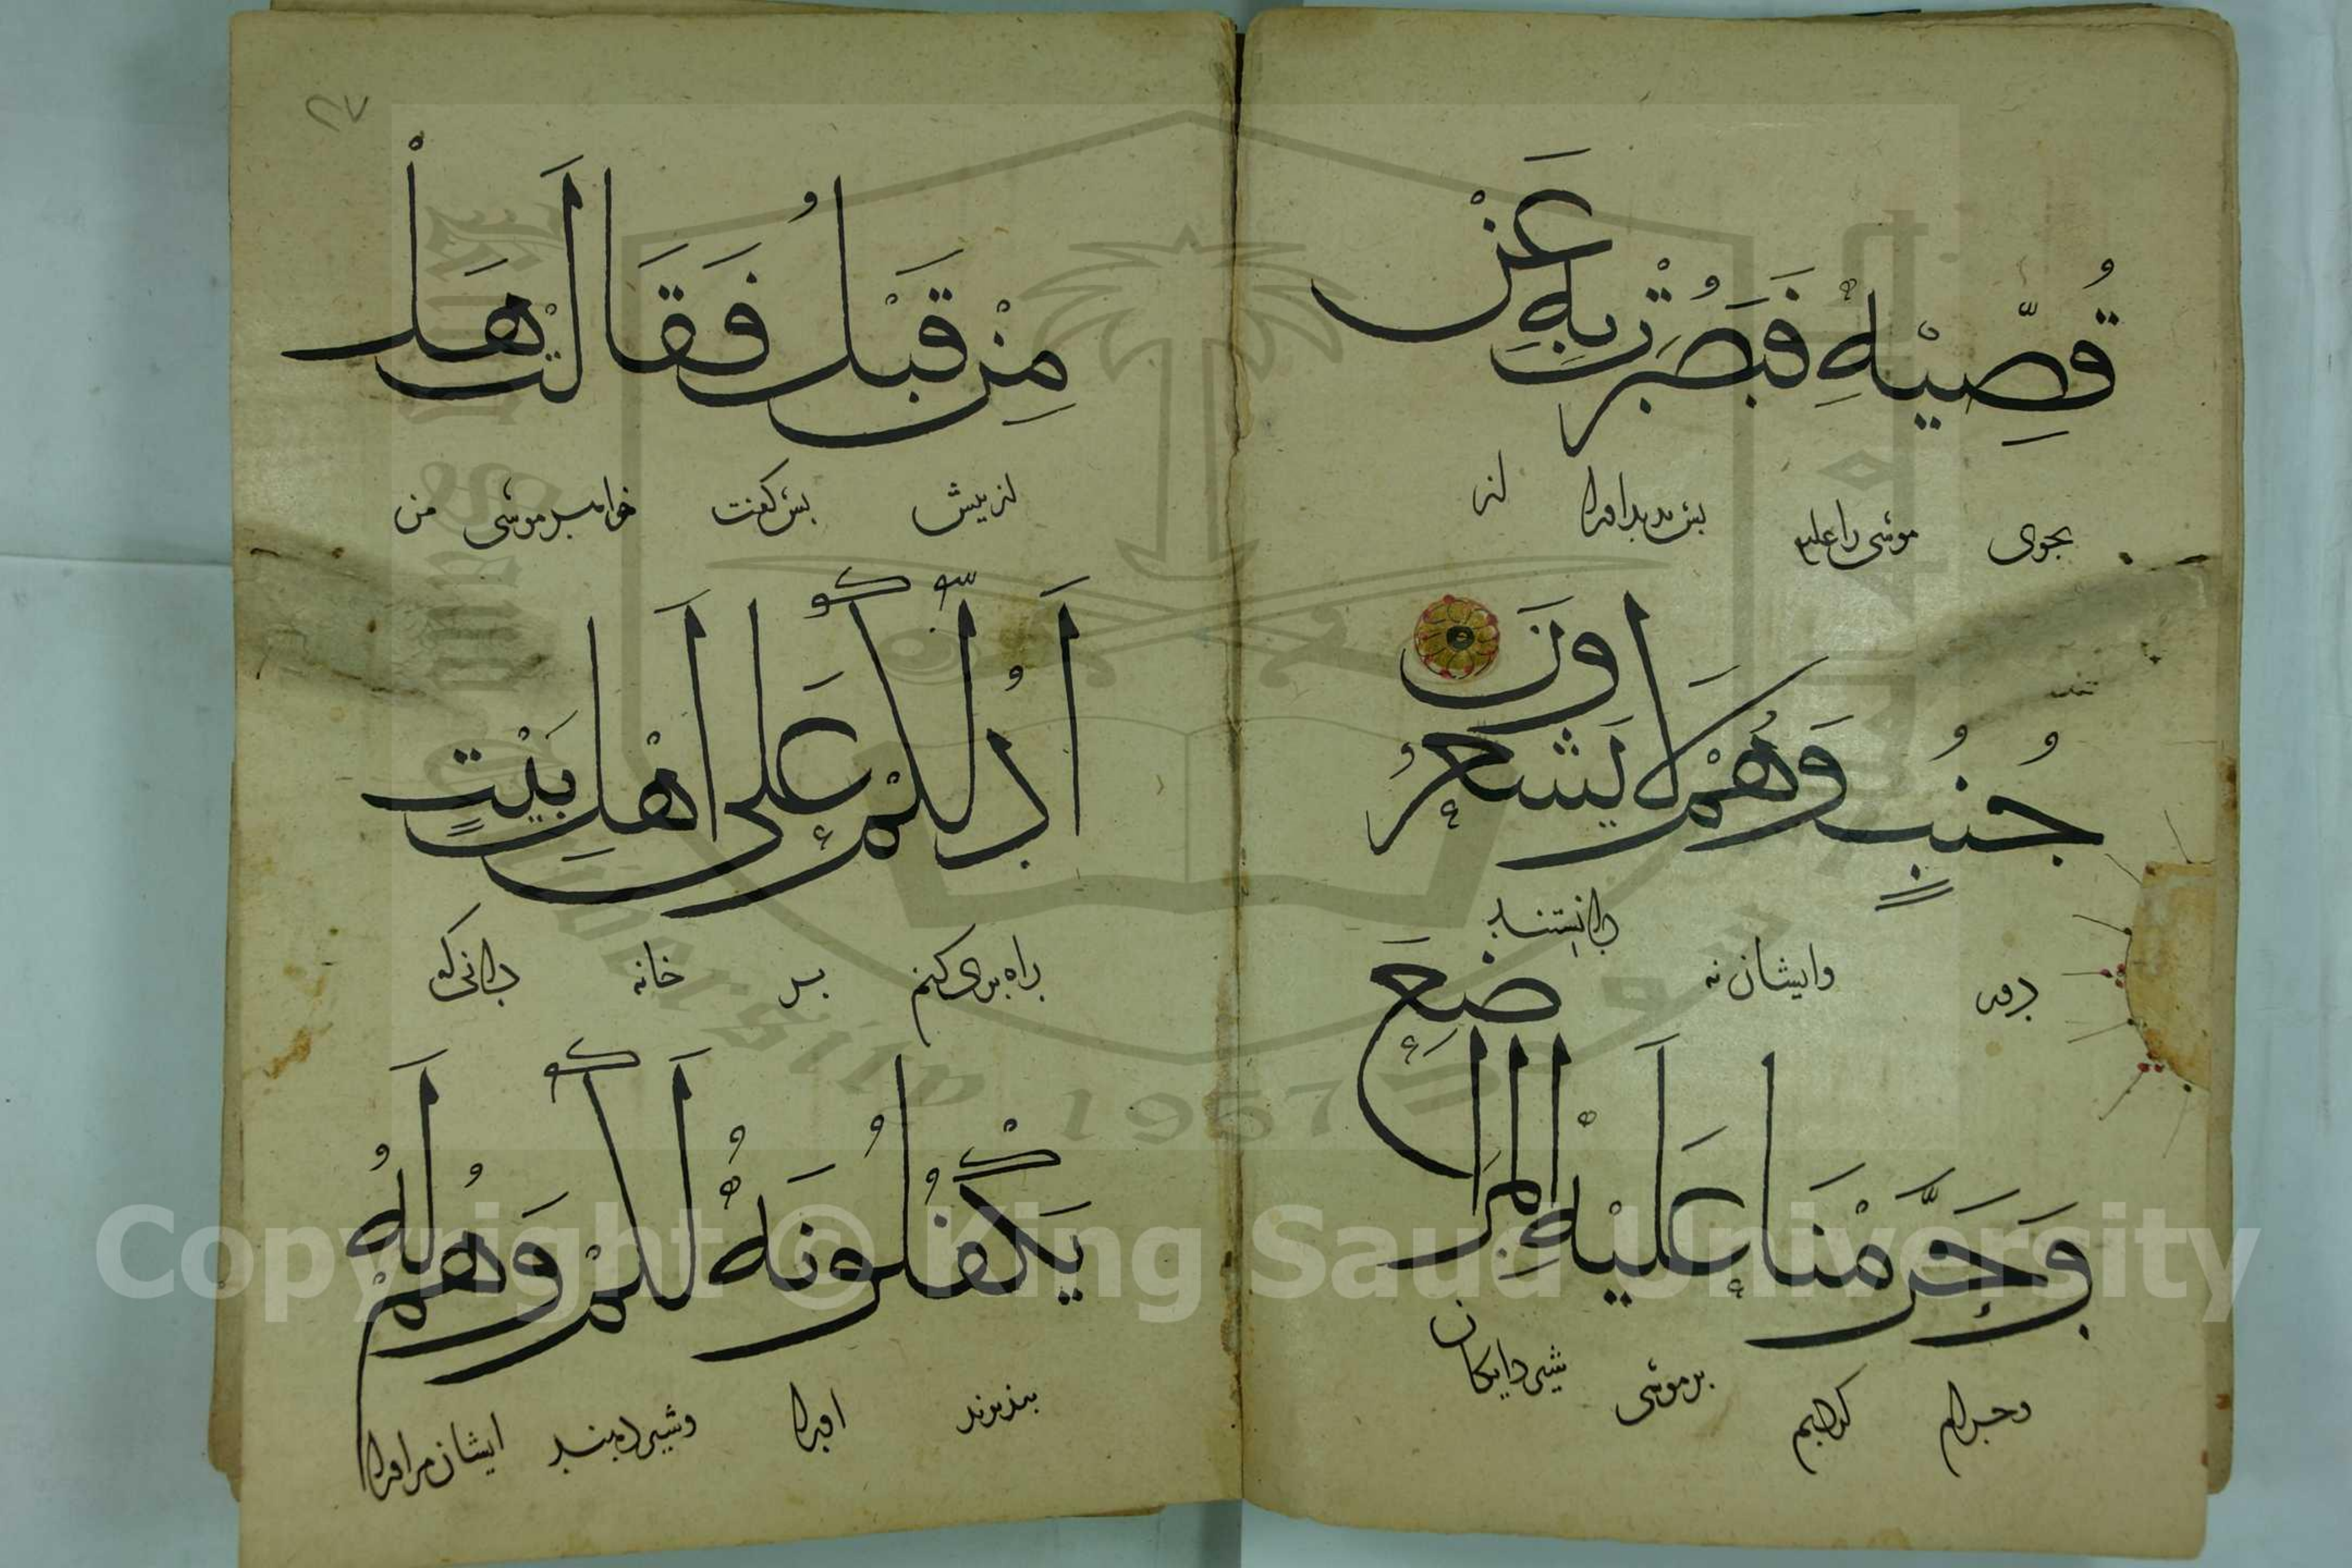 قُصِّيْهِ فَبَصُرَتْ بِهٖ عَنْ
بجوی موسی را علیه بس بدید اورا از
جُنُبٍ وَهُمْ لَا يَشْعُرُونَ
دور وایشان نه دانستند
وَحَرَّمْنَا عَلَيْهِ الْمَرَاضِعَ
وحرام کردیم بر موسی شیر دایکان
٢٧
مِنْ قَبْلُ فَقَالَتْ هَلْ
از پیش بس کفت خواهر موسی من
اَدُلُّكُمْ عَلٰى اَهْلِ بَيْتٍ
راه بری کنم بر خانه دانی کو
يَكْفُلُوْنَهٗ لَكُمْ وَهُمْ لَهٗ
بپذیرند اورا وشیر دهند ایشان مر اورا
Copyright © King Saud University
1957